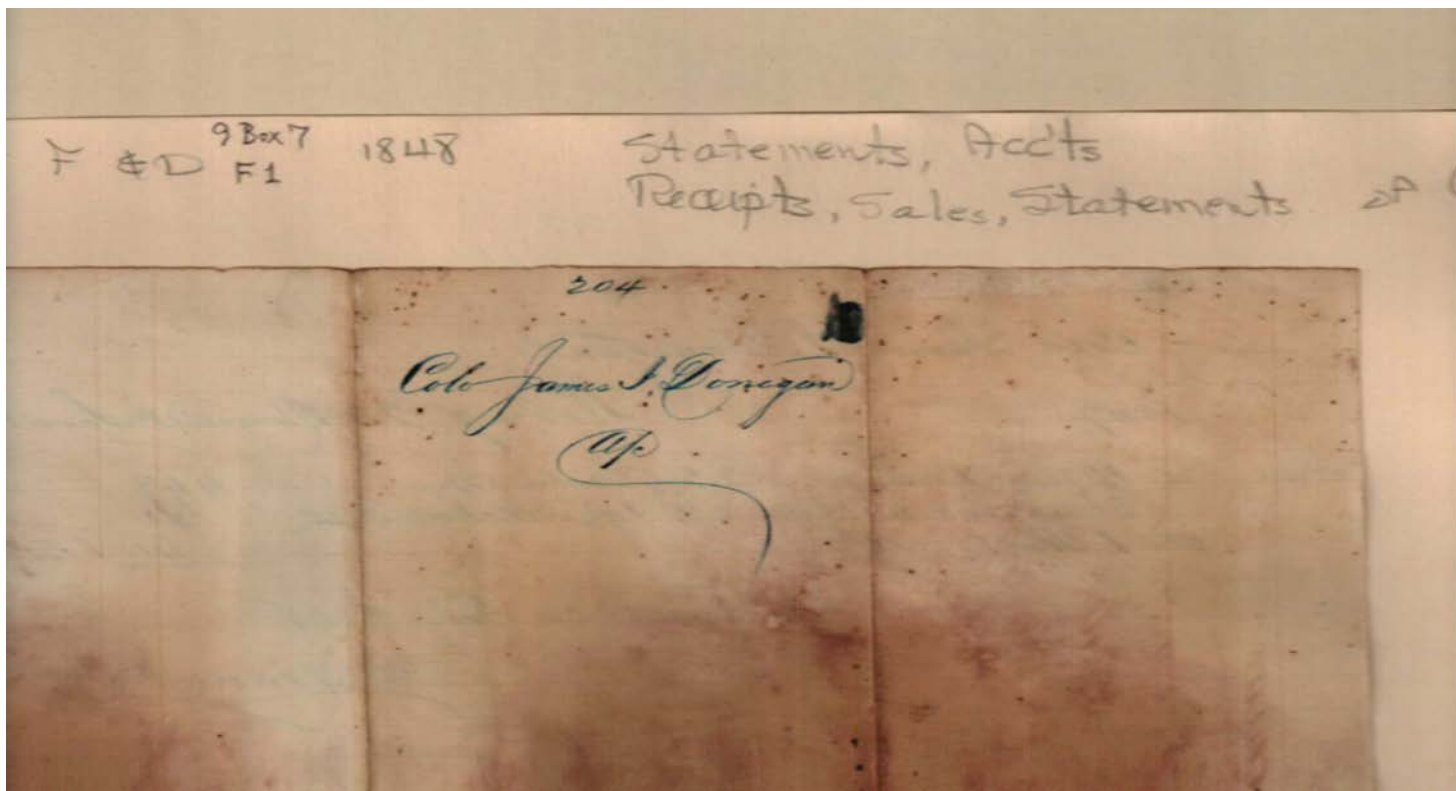 F & D 9 Box 7 1848 Statements, Acc'ts
F1 Receipts, Sales, Statements
204
Colo James J. Donegan
a/c